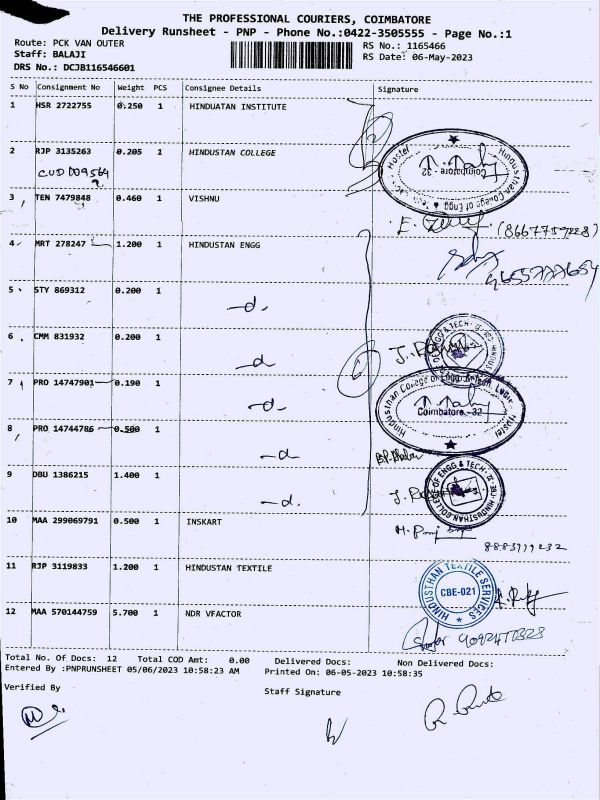 THE PROFESSIONAL COURIERS, COIMBATORE
Delivery Runsheet - PNP - Phone No.:0422-3505555 - Page No.:1
Route: PCK VAN OUTER RS No.: 1165466
Staff: BALAJI RS Date: 06-May-2023
DRS No.: DCJB116546601
S No Consignment No Weight PCS Consignee Details Signature
1 HSR 2722755 0.250 1 HINDUATAN INSTITUTE
2 RJP 3135263 0.205 1 HINDUSTAN COLLEGE
CUD 009564
3 TEN 7479848 0.460 1 VISHNU
(8667759228)
4 MRT 278247 1.200 1 HINDUSTAN ENGG
5 STY 869312 0.200 1 -d.
6 CMM 831932 0.200 1 -d
7 PRO 14747901 0.190 1 -d.
Coimbatore - 32
8 PRO 14744786 0.500 1 -d
9 DBU 1386215 1.400 1 -d.
10 MAA 299069791 0.500 1 INSKART
11 RJP 3119833 1.200 1 HINDUSTAN TEXTILE
HINDUSTHAN TEXTILE SERVICES
CBE-021
12 MAA 570144759 5.700 1 NDR VFACTOR
Total No. Of Docs: 12 Total COD Amt: 0.00 Delivered Docs: Non Delivered Docs:
Entered By :PNPRUNSHEET 05/06/2023 10:58:23 AM Printed On: 06-05-2023 10:58:35
Verified By Staff Signature